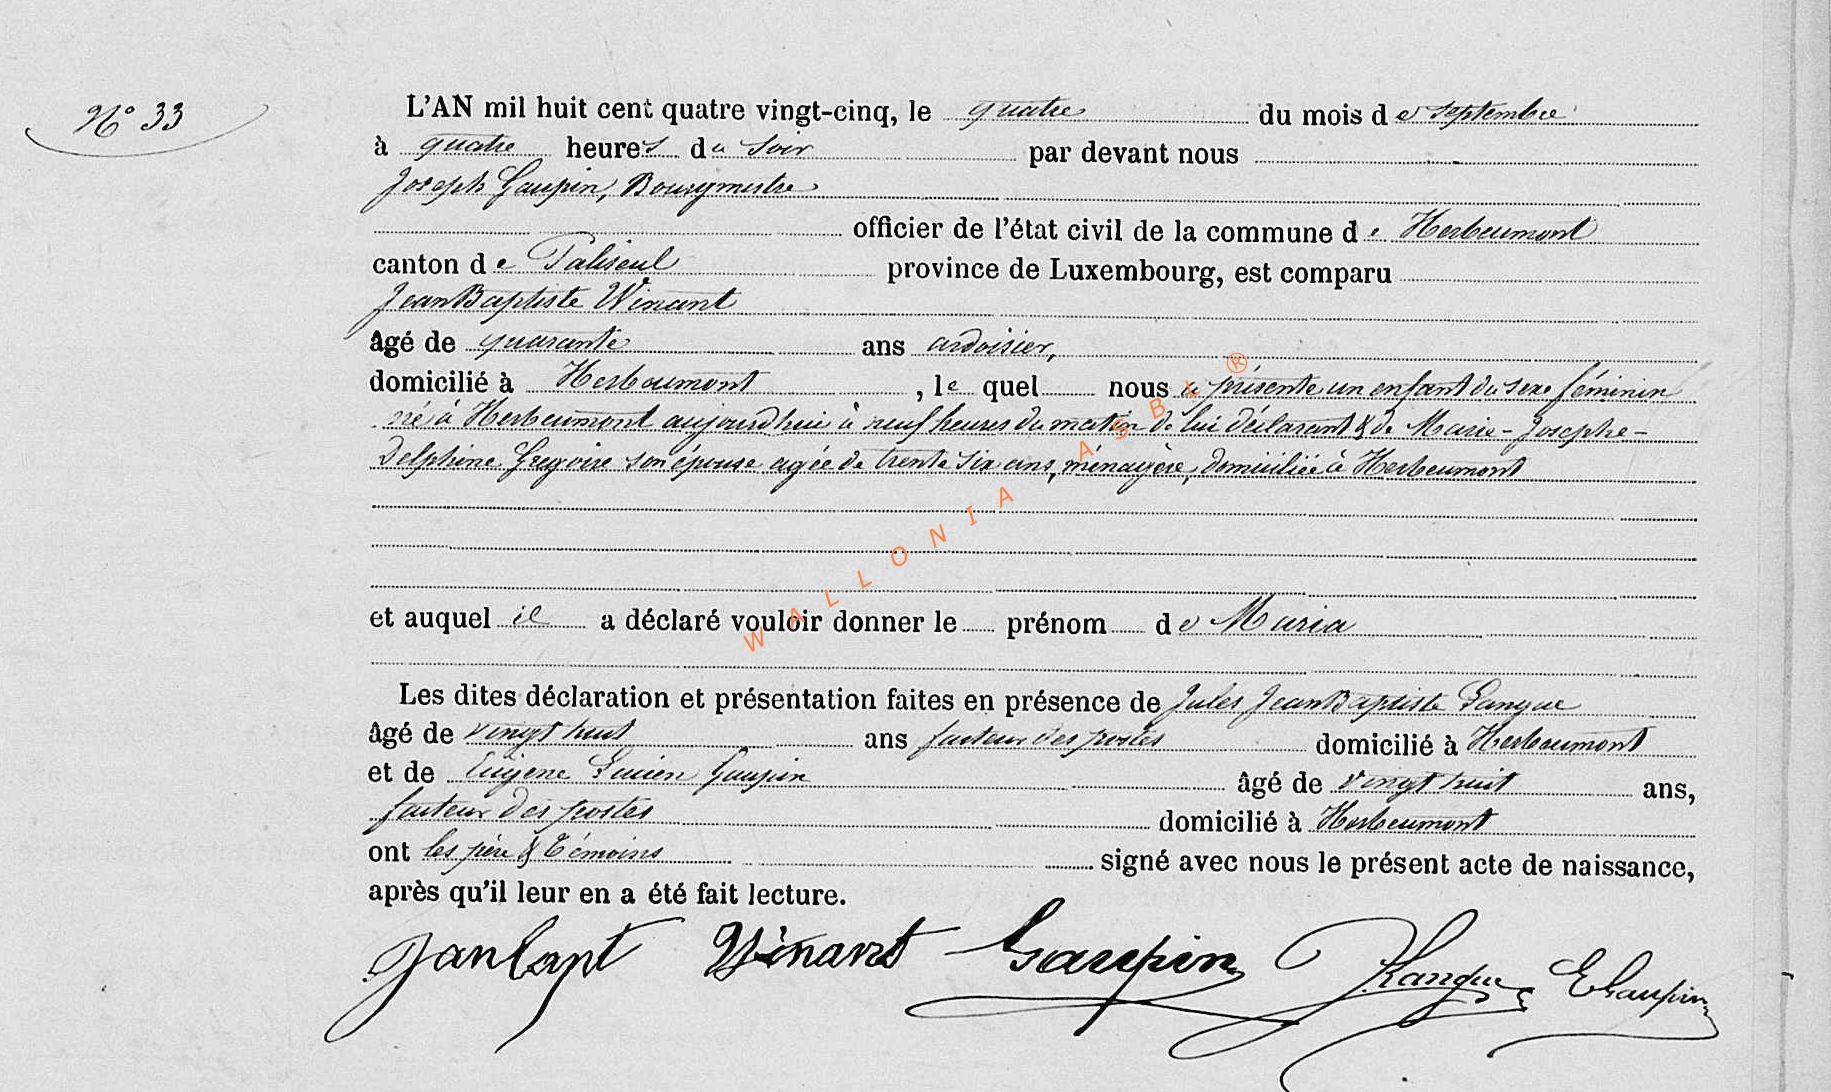 N° 33
L'AN mil huit cent quatre vingt-cinq, le quatre du mois de septembre
à quatre heures du soir par devant nous
Joseph Gaupin, Bourgmestre
officier de l'état civil de la commune de Herbeumont
canton de Paliseul province de Luxembourg, est comparu
Jean Baptiste Winant
âgé de quarante ans ardoisier,
domicilié à Herbeumont, le quel nous a présenté un enfant du sexe féminin
né à Herbeumont aujourd'hui à neuf heures du matin de lui déclarant & de Marie-Josephe-
Delphine Gregoire son épouse agée de trente six ans, ménagère, domiciliée à Herbeumont
et auquel il a déclaré vouloir donner le prénom de Maria
Les dites déclaration et présentation faites en présence de Jules Jean Baptiste Langue
âgé de vingt huit ans facteur des postes domicilié à Herbeumont
et de Eugène Lucien Gaupin âgé de vingt huit ans,
facteur des postes domicilié à Herbeumont
ont les père & témoins signé avec nous le présent acte de naissance,
après qu'il leur en a été fait lecture.
Janbapt Winant Gaupin JLangue EGaupin
WALLONIA ASBL ®